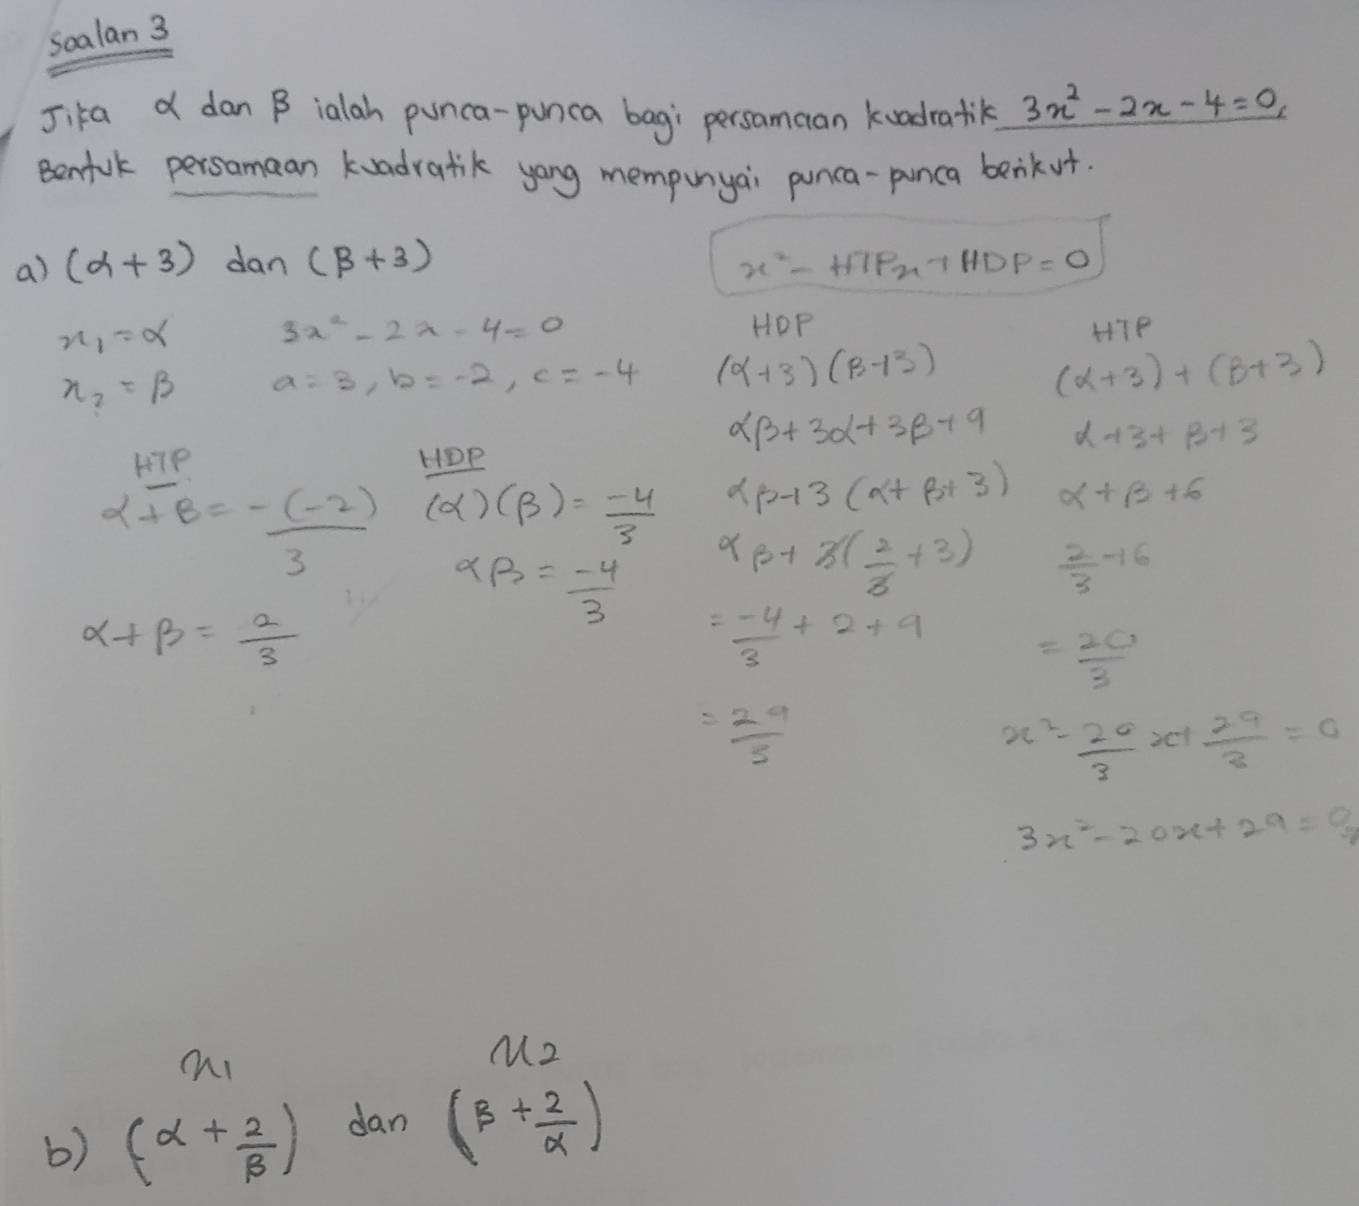 Soalan 3
Jika α dan β ialah punca-punca bagi persamaan kuadratik 3x² - 2x - 4 = 0,
Bentuk persamaan kuadratik yang mempunyai punca-punca berikut.
a) (α+3) dan (β+3)
x² - HTPx + HDP = 0
x₁ = α
x₂ = β
3x² - 2x - 4 = 0
a = 3, b = -2, c = -4
HTP
α + β = -(-2)/3
α + β = 2/3
HDP
(α)(β) = -4/3
αβ = -4/3
HDP
(α+3)(β+3)
αβ + 3α + 3β + 9
αβ + 3(α + β + 3)
αβ + 3(2/3 + 3)
= -4/3 + 2 + 9
= 29/3
HTP
(α+3) + (β+3)
α + 3 + β + 3
α + β + 6
2/3 + 6
= 20/3
x² - 20/3 x + 29/3 = 0
3x² - 20x + 29 = 0
x₁ x₂
b) (α + 2/β) dan (β + 2/α)